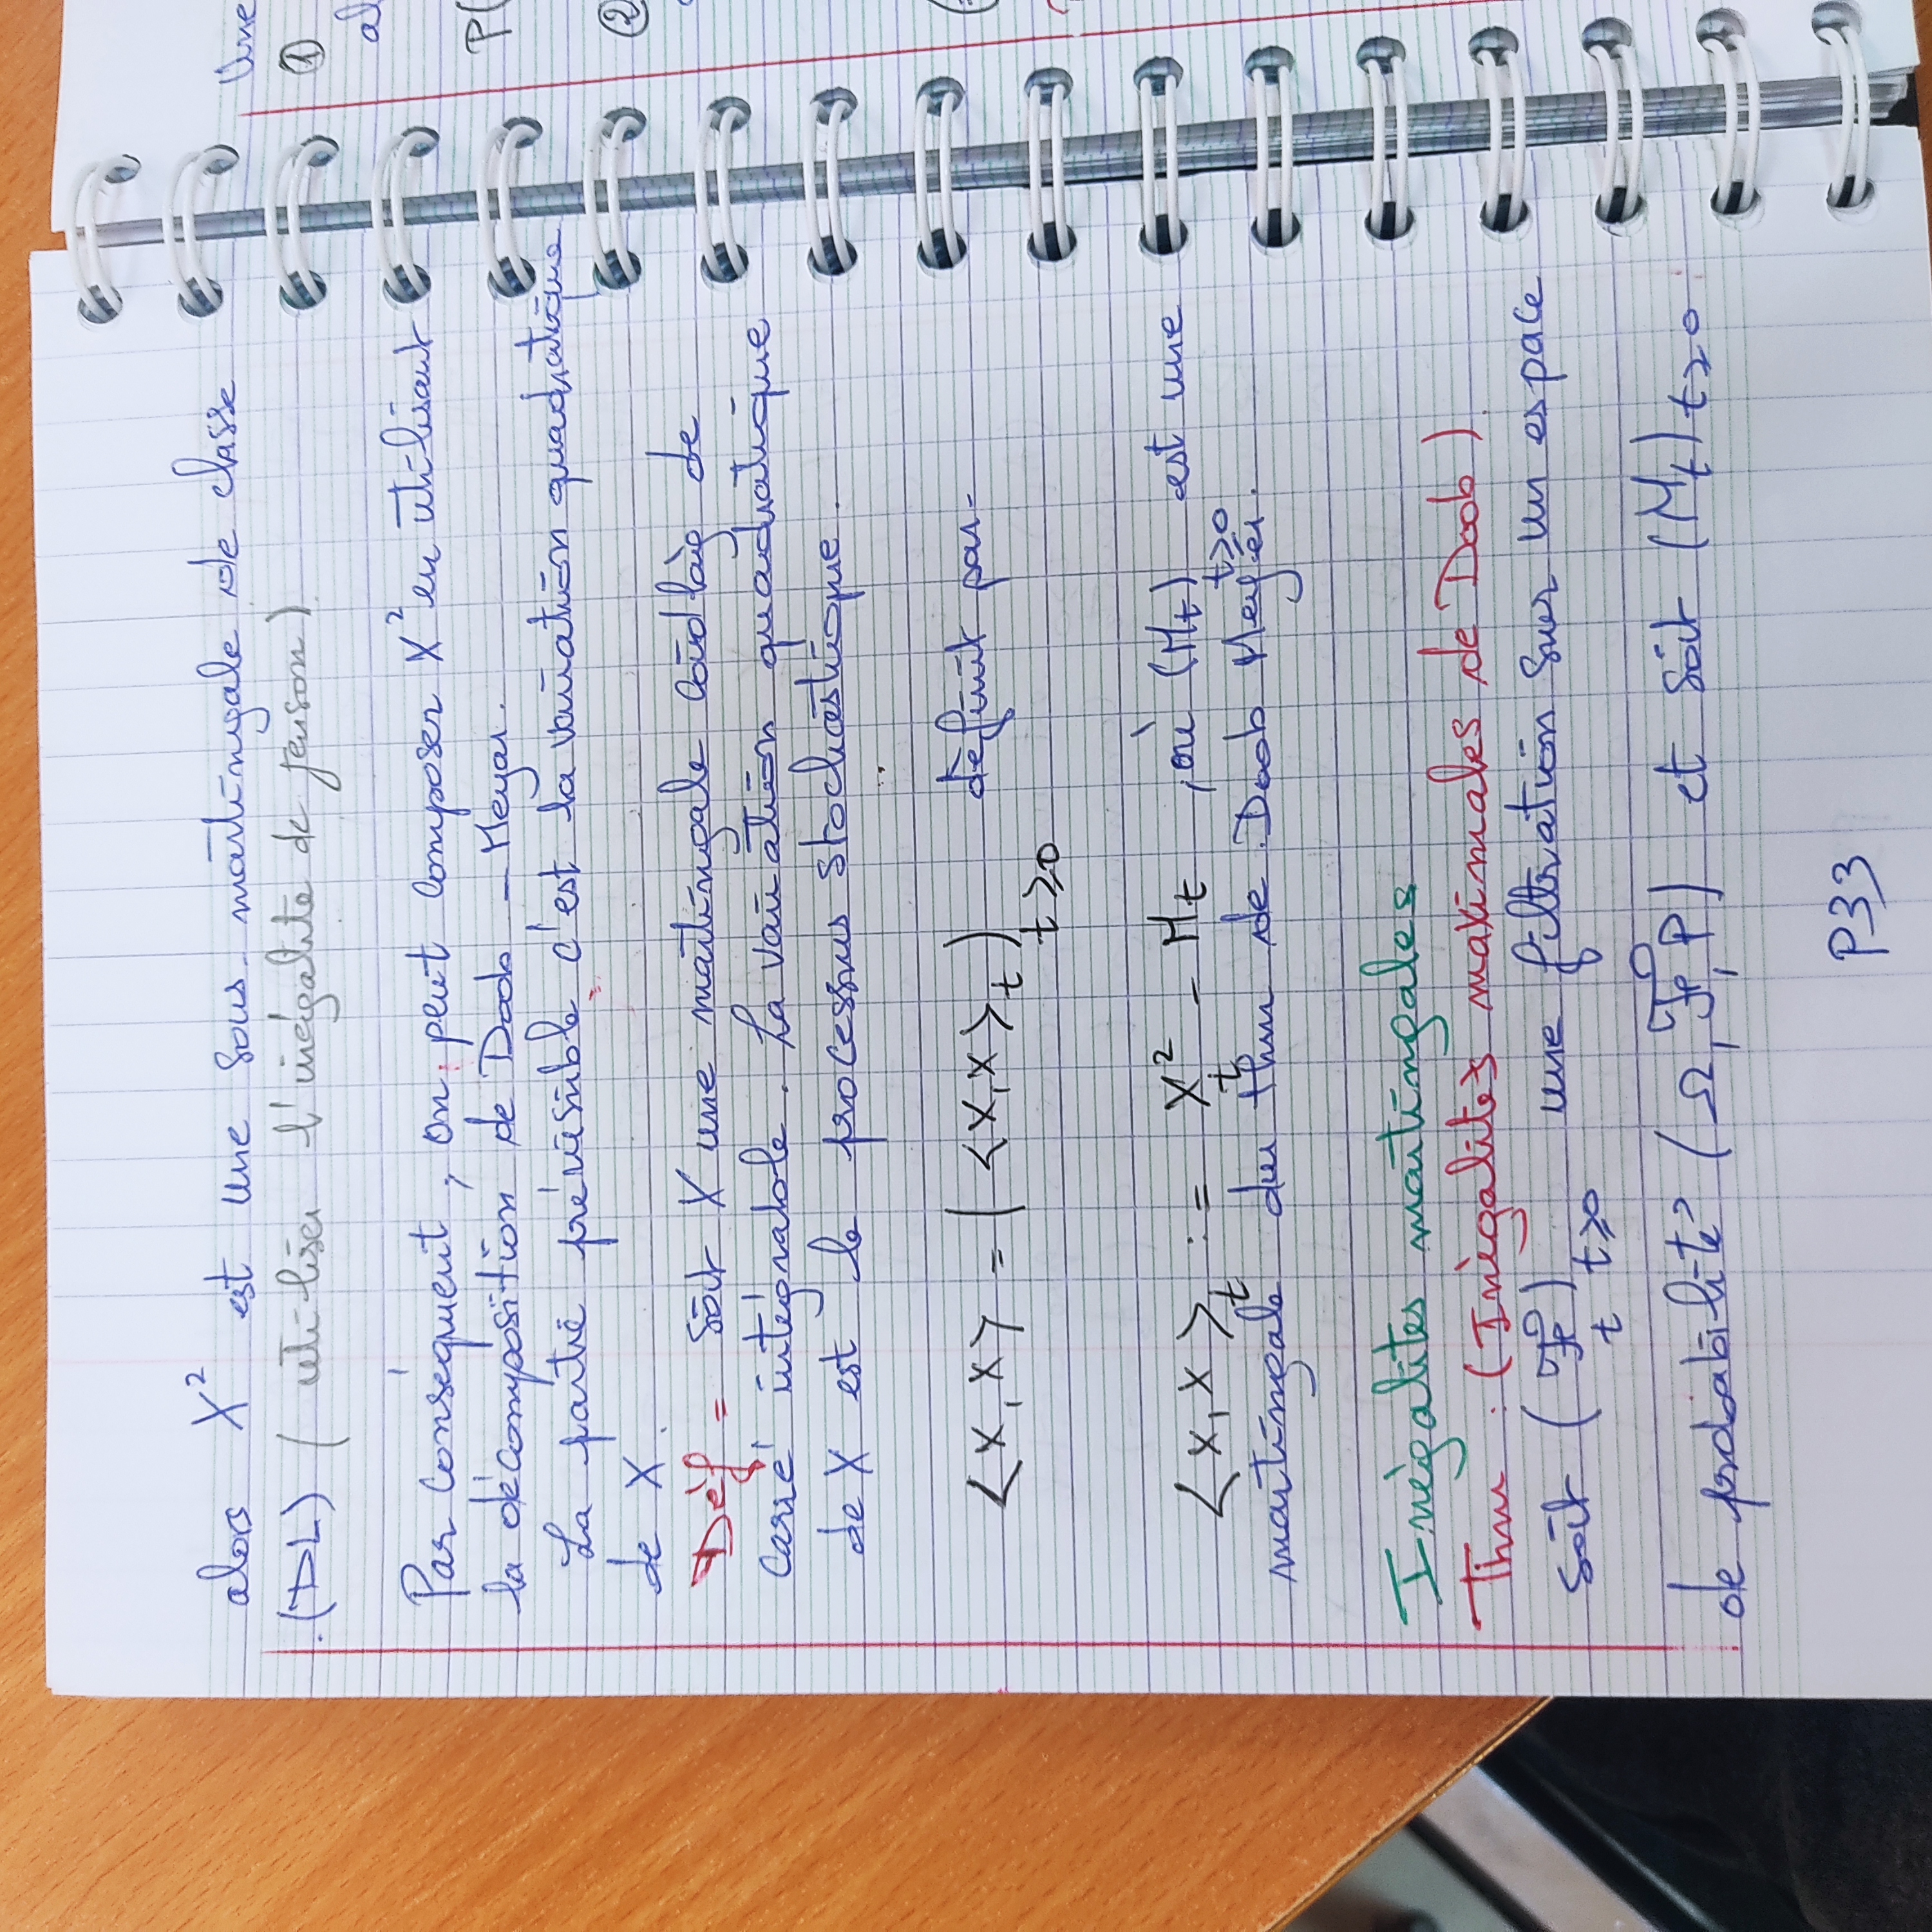 alors X² est une sous-martingale de classe
(DL) (utiliser l'inégalité de Jenson)
Par conséquent, on peut composer X² en utilisant
la décomposition de Doob - Meyer.
La partie prévisible c'est la variation quadratique
de X.
Déf = soit X une martingale càdlàg de
carré intégrable. La variation quadratique
de X est le processus stochastique.
<X,X> = (<X,X>_t)_{t≥0} définit par-
<X,X>_t := X_t² - M_t , où (M_t)_{t≥0} est une
martingale du thm de Doob Meyer.
Inégalités martingales
Thm : (Inégalités maximales de Doob)
soit (ℱ_t)_{t≥0} une filtration sur un espace
de probabilité (Ω, ℱ, P) et soit (M_t)_{t≥0}
P33
Une
①
al
P(
②